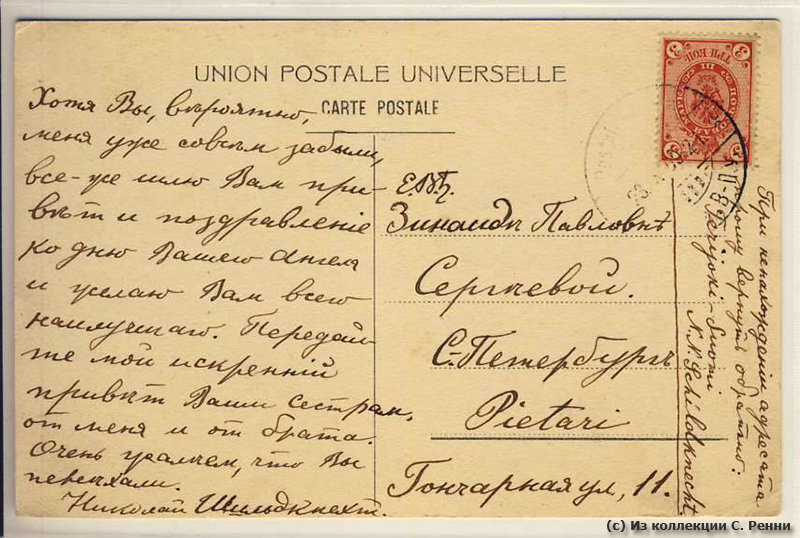 UNION POSTALE UNIVERSELLE
CARTE POSTALE
Хотя Вы, вѣроятно,
меня уже совсѣм забыли,
все-же шлю Вам при-
вѣт и поздравленіе
ко дню Вашего Ангела
и желаю Вам всего
наилучшаго. Передай-
те мой искренній
привѣт Ваши сестрам,
от меня и от брата.
Очень жалѣем, что Вы
переѣхали.
Николай Шильдкнехт.
Е.В.Б.
Зинаидѣ Павловнѣ
Сергѣевой.
С-Петербургъ
Pietari
Гончарная ул, 11.
При ненахожденіи адресата
прошу вернуть обратно:
Teryoki-Suomi
N.N. Schildknecht.
3 ТРИ КОП 3
3 3
(с) Из коллекции С. Ренни